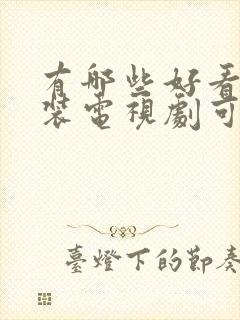 有哪些好看
裝電視劇可
臺燈下的節奏